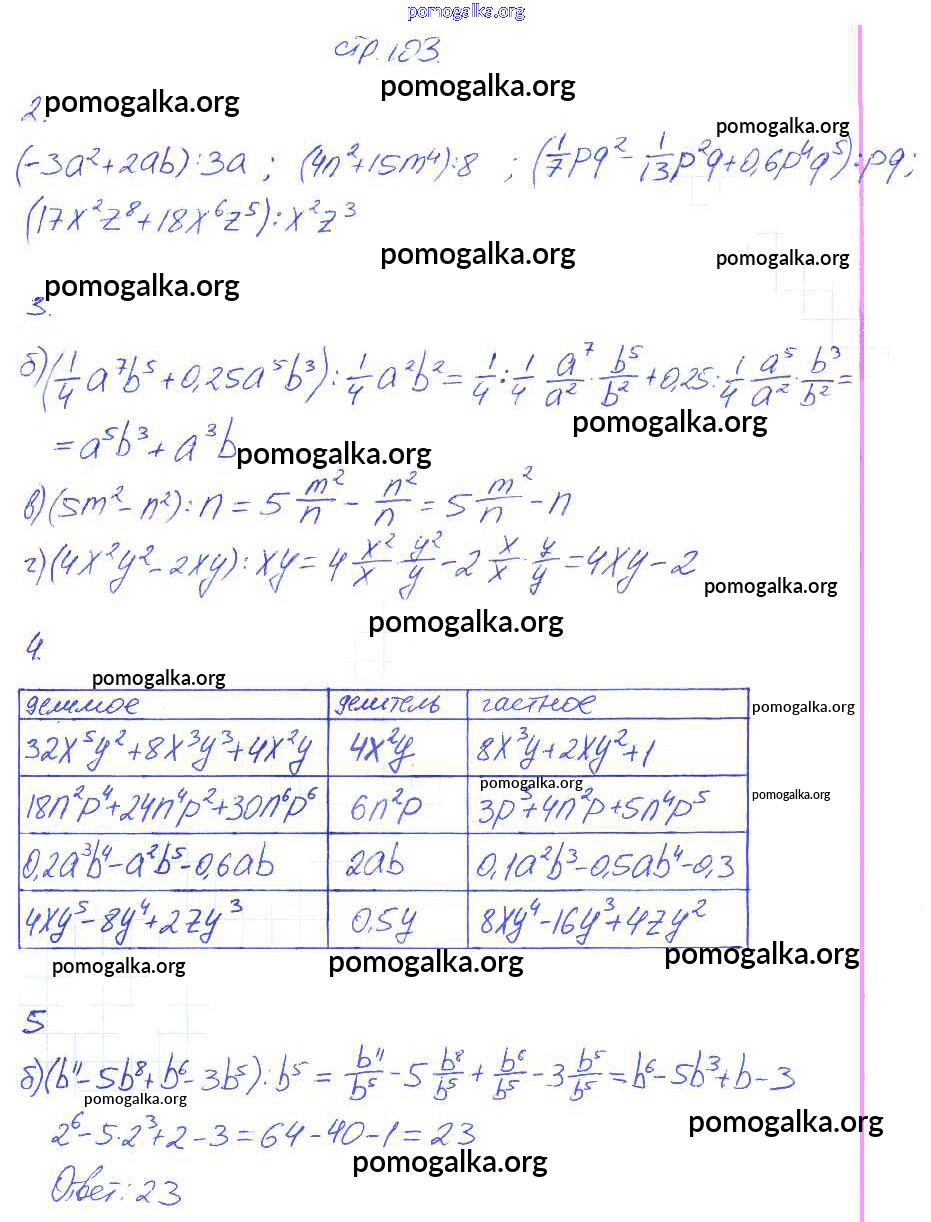 pomogalka.org
стр. 103.
pomogalka.org
2. pomogalka.org
pomogalka.org
(-3a²+2ab):3a; (4n²+15m⁴):8; (1/7pq²-1/13p²q+0,6p⁴q⁵):pq;
(17x²z⁸+18x⁶z⁵):x²z³
pomogalka.org pomogalka.org
pomogalka.org
3.
б)(1/4a⁷b⁵+0,25a⁵b³):1/4a²b²=1/4:1/4 a⁷/a²·b⁵/b²+0,25:1/4 a⁵/a²·b³/b²=
pomogalka.org
=a⁵b³+a³b
pomogalka.org
в)(5m²-n²):n=5 m²/n - n²/n = 5 m²/n - n
г)(4x²y²-2xy):xy=4 x²/x·y²/y-2 x/x·y/y=4xy-2
pomogalka.org
pomogalka.org
4.
pomogalka.org
делимое делитель частное pomogalka.org
32x⁵y²+8x³y³+4x²y 4x²y 8x³y+2xy²+1
pomogalka.org pomogalka.org
18n²p⁴+24n⁴p²+30n⁶p⁶ 6n²p 3p³+4n²p+5n⁴p⁵
0,2a³b⁴-a²b⁵-0,6ab 2ab 0,1a²b³-0,5ab⁴-0,3
4xy⁵-8y⁴+2zy³ 0,5y 8xy⁴-16y³+4zy²
pomogalka.org pomogalka.org pomogalka.org
5
б)(b¹¹-5b⁸+b⁶-3b⁵):b⁵=b¹¹/b⁵-5 b⁸/b⁵+b⁶/b⁵-3 b⁵/b⁵=b⁶-5b³+b-3
pomogalka.org
pomogalka.org
2⁶-5·2³+2-3=64-40-1=23
pomogalka.org
Ответ: 23